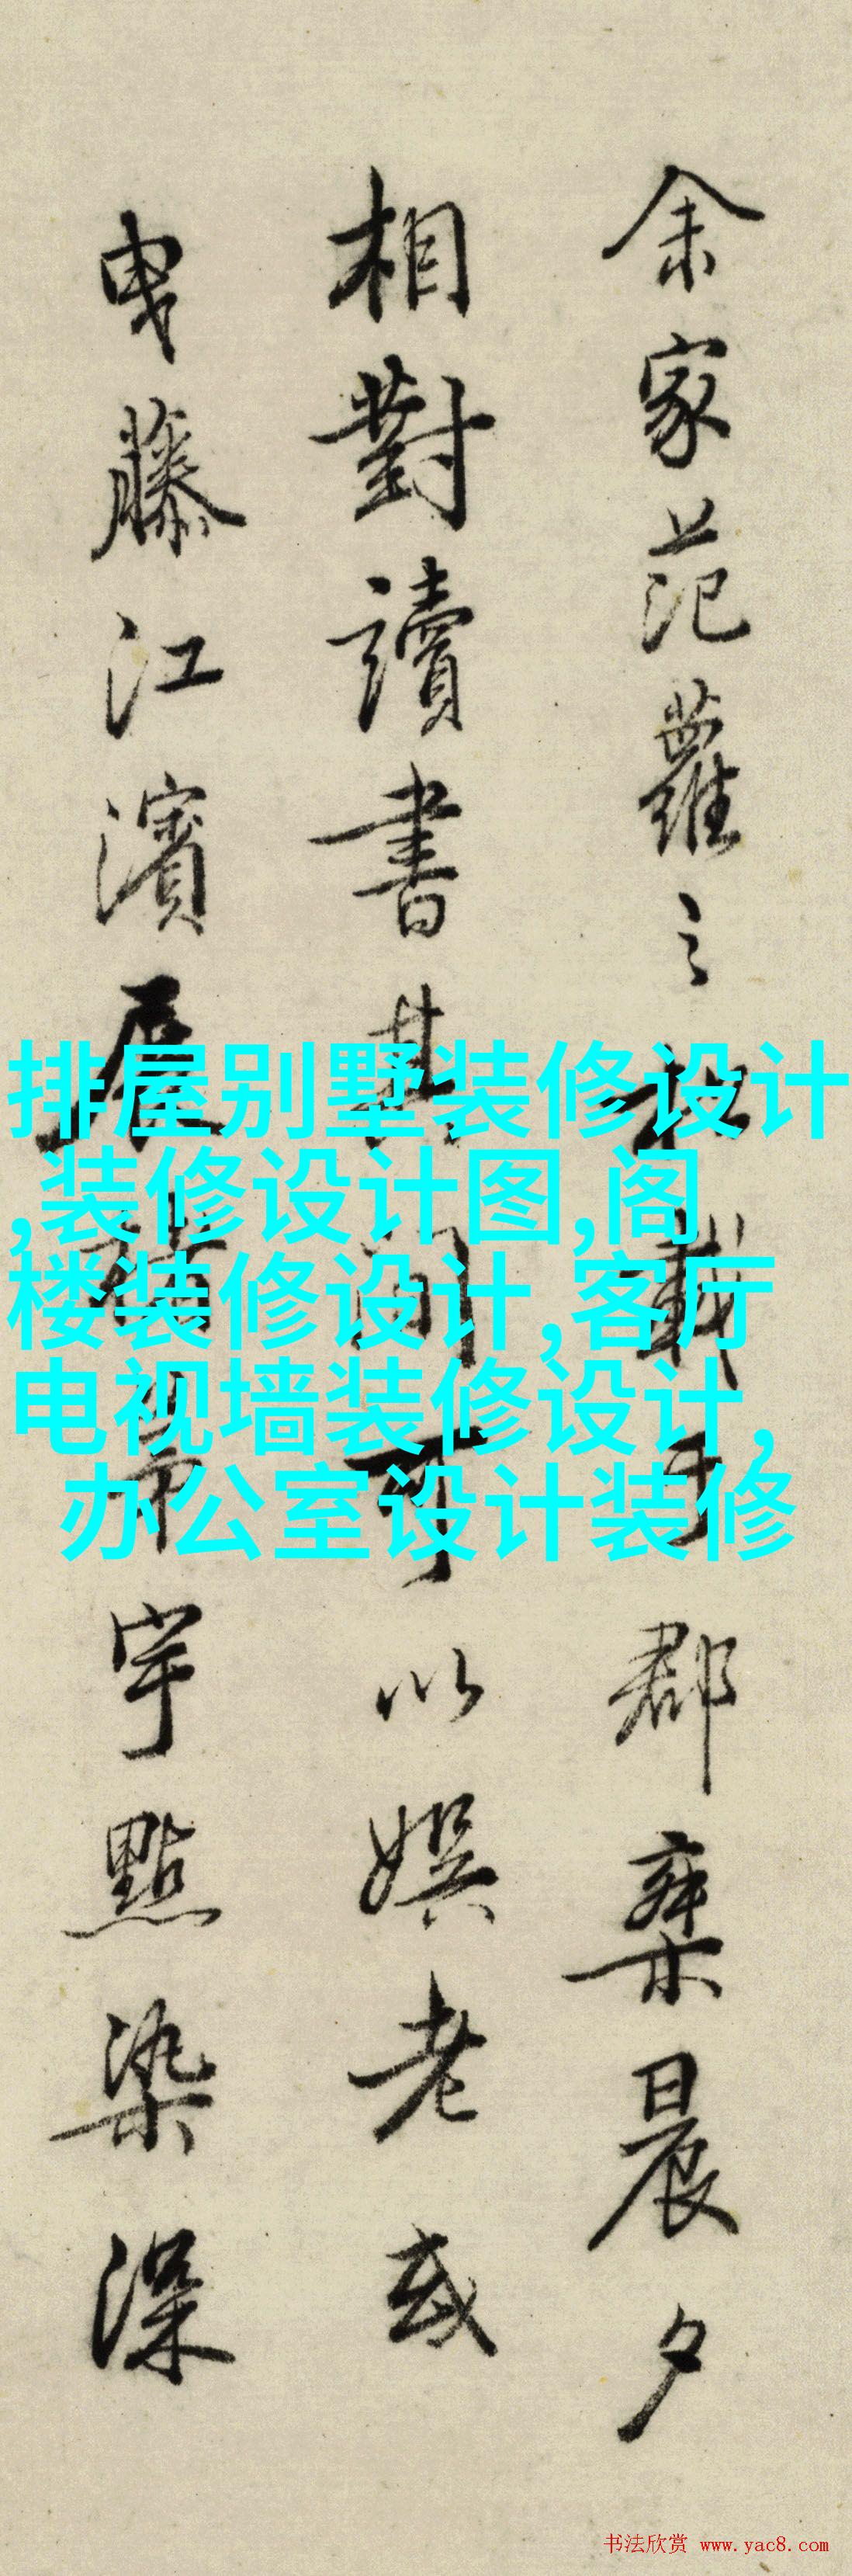 余家范蘿之
載于郡亭晨夕
相對讀書其間可以娱老或
曳藤江濱
帝宇點染深
排屋别墅装修设计
,装修设计图,阁
楼装修设计,客厅
电视墙装修设计,
办公室设计装修
书法欣赏 www.yac8.com